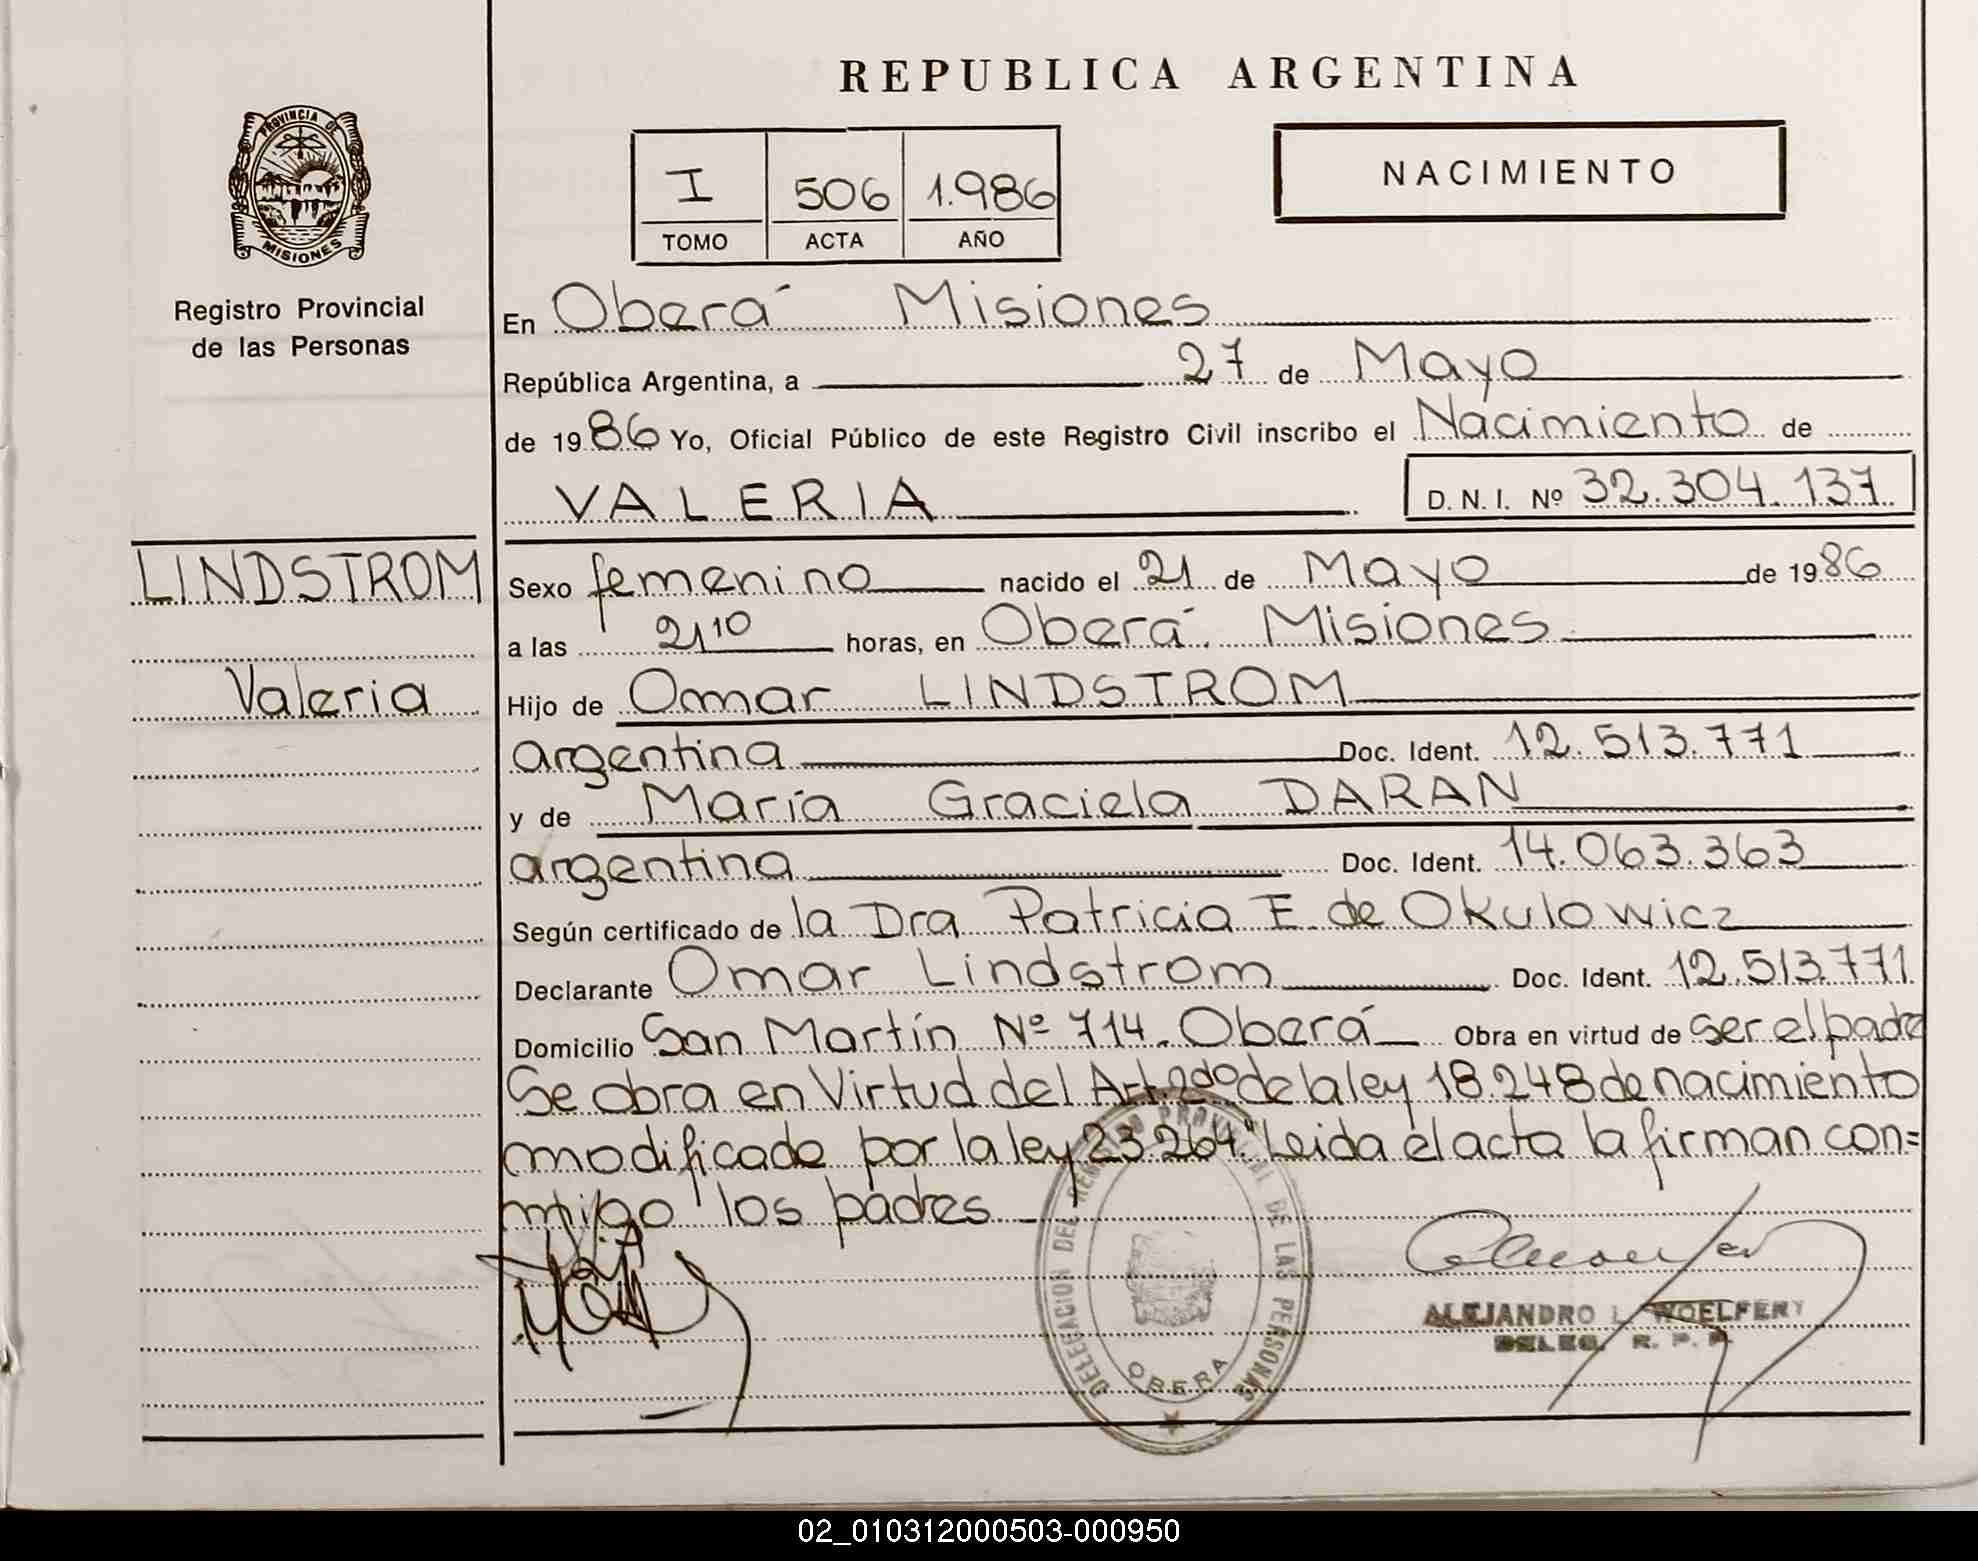 REPUBLICA ARGENTINA
PROVINCIA DE
MISIONES
Registro Provincial
de las Personas
I 506 1.986
TOMO ACTA AÑO
NACIMIENTO
En Oberá Misiones
República Argentina, a 27 de Mayo
de 1986 Yo, Oficial Público de este Registro Civil inscribo el Nacimiento de
VALERIA D. N. I. Nº 32.304.137
LINDSTROM
Valeria
Sexo femenino nacido el 21 de Mayo de 1986
a las 21 10 horas, en Oberá Misiones
Hijo de Omar LINDSTROM
argentina Doc. Ident. 12.513.771
y de María Graciela DARAN
argentina Doc. Ident. 14.063.363
Según certificado de la Dra Patricia E. de Okulowicz
Declarante Omar Lindstrom Doc. Ident. 12.513.771
Domicilio San Martín Nº 714. Oberá Obra en virtud de ser el padre
Se obra en Virtud del Art. 2do de la ley 18.248 de nacimiento
modificada por la ley 23.264." Leida el acta la firman con=
migo los padres
DELEGACION DEL REGISTRO PROVINCIAL DE LAS PERSONAS
OBERA
ALEJANDRO L. WOELFERT
DELEG. R. P. P.
02_010312000503-000950